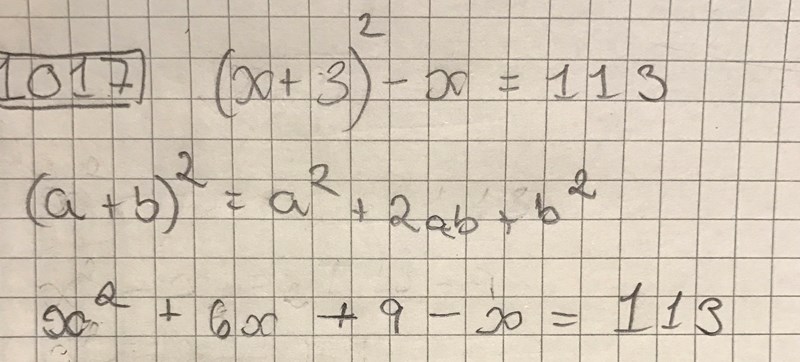 1017 (x+3)² - x = 113
(a+b)² = a² + 2ab + b²
x² + 6x + 9 - x = 113